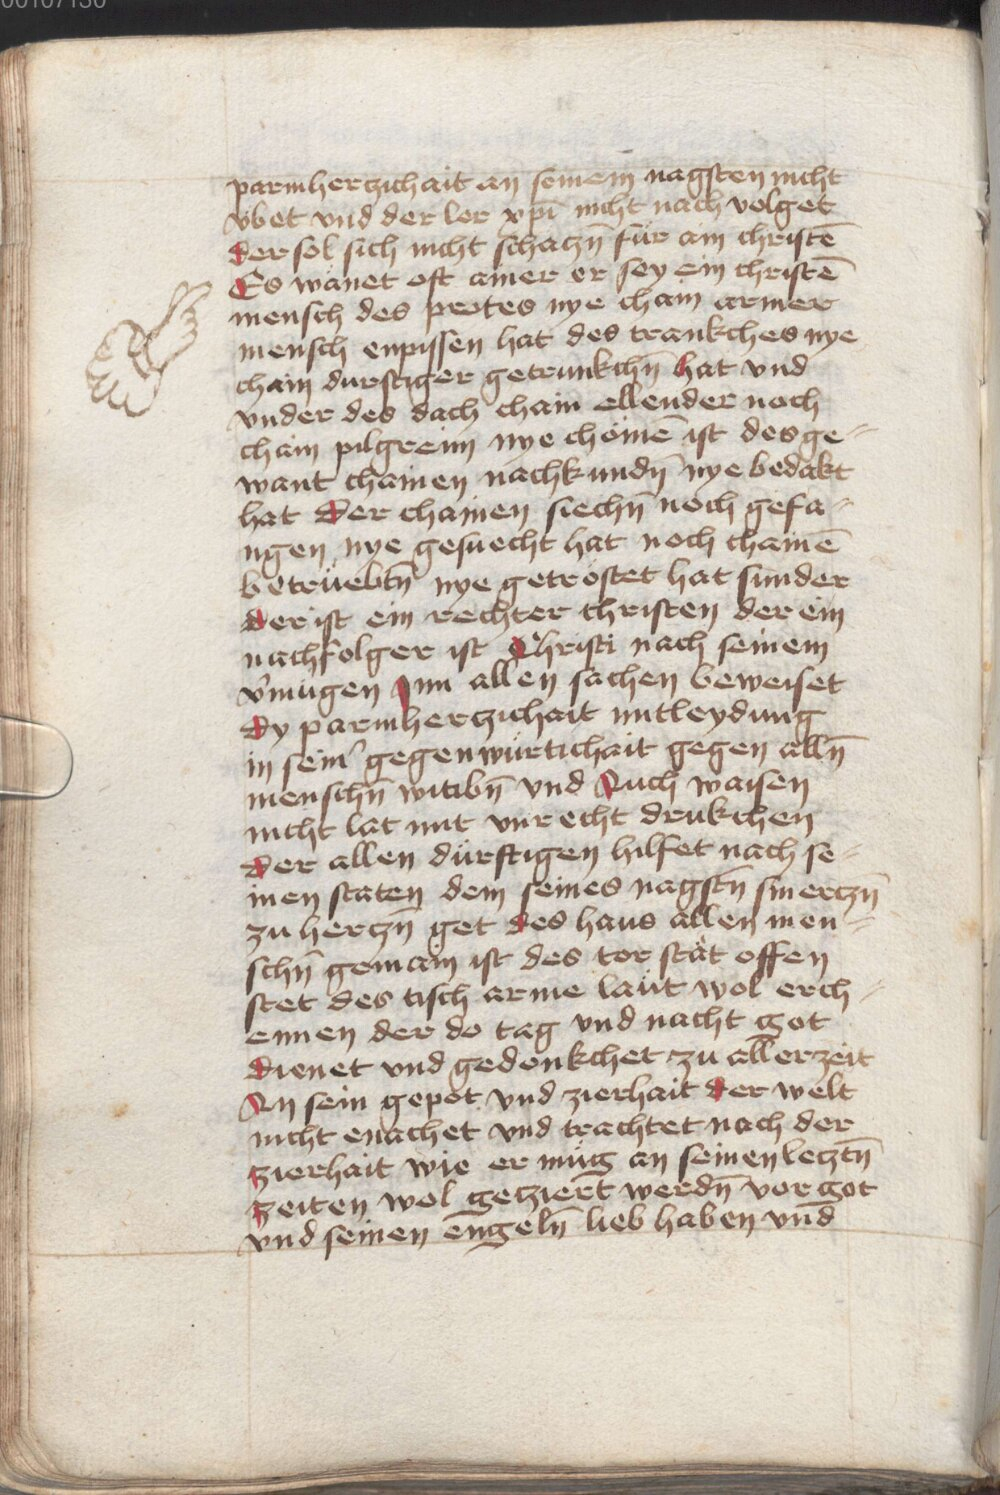 00107130
parmherczichait an seinem nagsten nicht
vbet vnd der ler xp̄i nicht nach volget
der sol sich nicht schaczn̄ für ain christē
Es wänet oft ainer er sey ein christē
mensch des protes nye chain armer
mensch enpissen hat des trankches nye
chain durstiger getrunkchn̄ hat vnd
vnder des dach chain ellender noch
chain pilgreim nye chömē ist des ge-
want chainen nachkundn̄ nye bedakt
hat der chainen siechn̄ noch gefa-
ngen nye gesuecht hat noch chainē
betrüebtn̄ nye getröstet hat sunder
der ist ein rechter christen der ein
nachfolger ist Christi nach seinem
v'mügen Inn allen sachen beweiset
dy parmherczichait mitleydung
in sein' gegenwürtichait gegen alln̄
menschn̄ witibn̄ vnd Auch waisen
nicht lat mit vnrecht drukchen
der allen dürftigen hilfet nach se-
inen staten dem seines nagstn̄ smerczn̄
zu herczn̄ get des haus allen men-
schn̄ gemain ist des tor stät offen
stet des tisch arme läut wol erch-
ennen der do tag vnd nacht got
dienet vnd gedenkchet zu aller zeit
An sein gepot vnd zierhait der welt
nicht enachet vnd trachtet nach der
zierhait wie er müg an seinen lecztn̄
zeiten wol gecziert werdn̄ vor got
vnd seinen engeln̄ lieb haben vnd